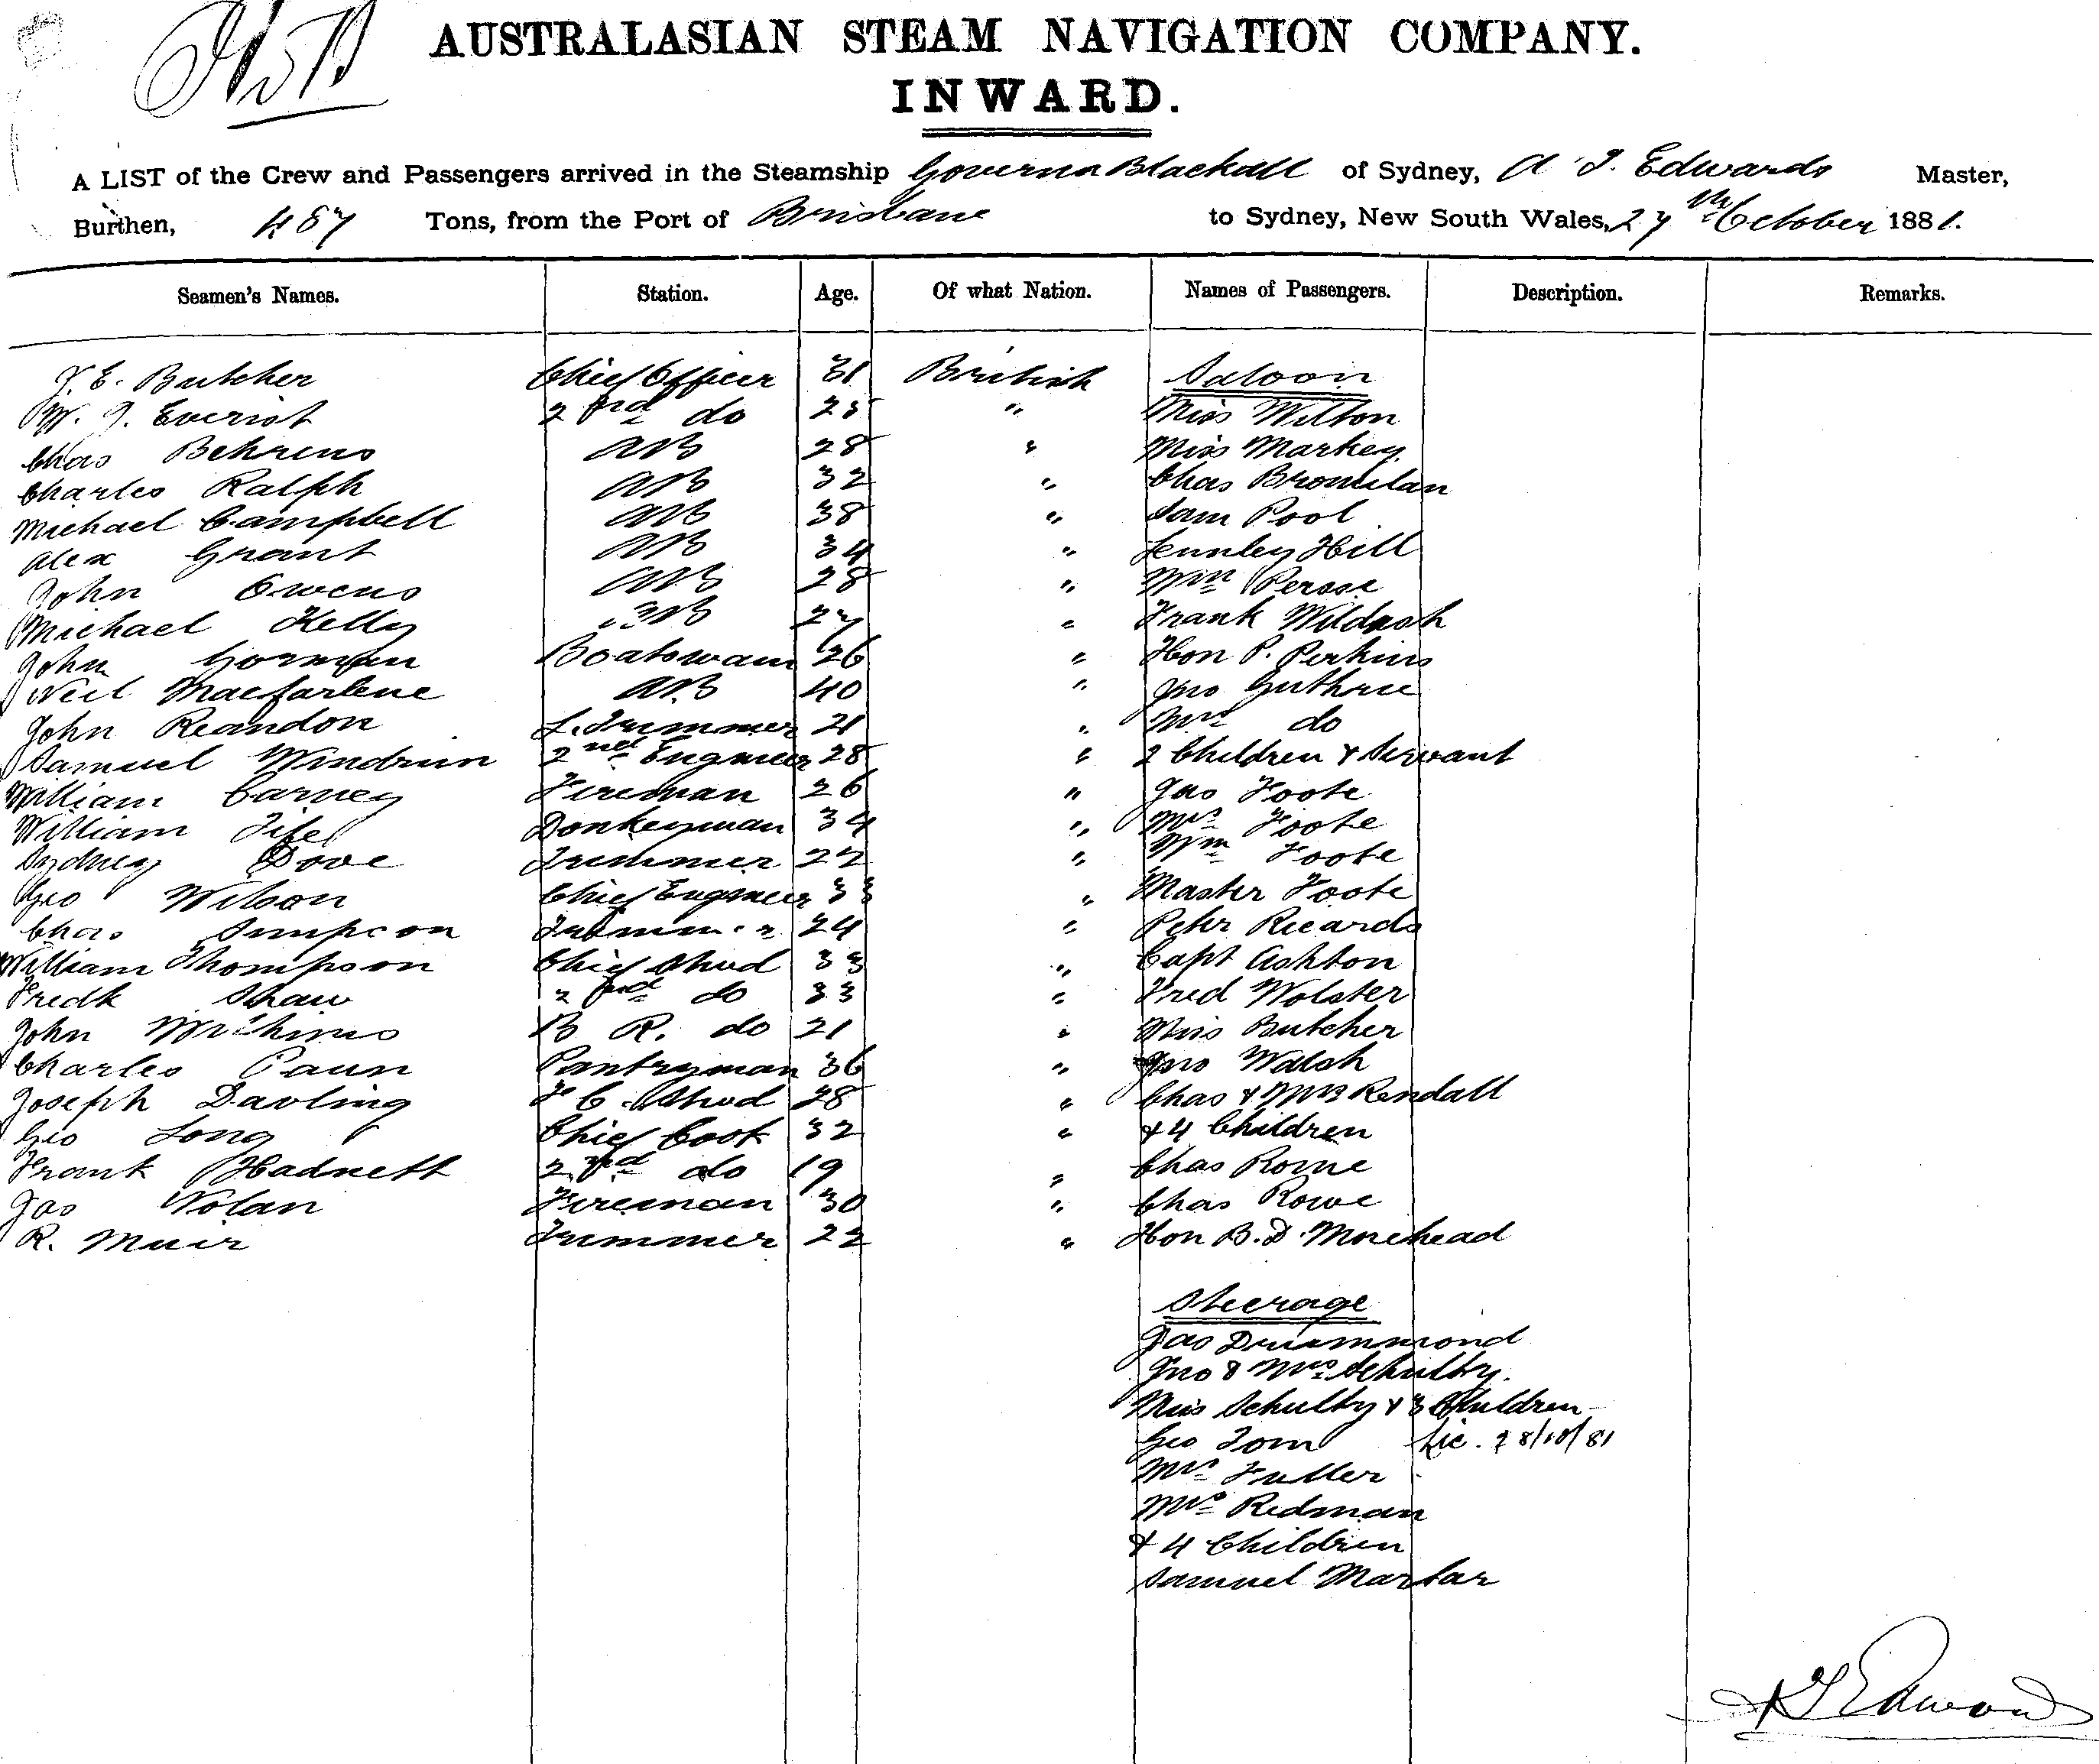 AUSTRALASIAN STEAM NAVIGATION COMPANY.
INWARD.
A LIST of the Crew and Passengers arrived in the Steamship Governor Blackall of Sydney, A J. Edwards Master,
Burthen, 487 Tons, from the Port of Brisbane to Sydney, New South Wales, 27th October 1881.
Seamen's Names. Station. Age. Of what Nation. Names of Passengers. Description. Remarks.
J. E. Butcher Chief Officer 31 British Saloon
W. J. Everist 2nd do 25 " Miss Wilton
Chas Behrens AB 28 " Miss Markey
Charles Ralph AB 32 " Chas
Michael Campbell AB 38 " Sam Pool
Alex Grant AB 34 " Hill
John Owens AB 28 " Wm Persse
Michael Kelly AB 27 " Frank Wildash
John Gorman Boatswain 26 " Hon P. Perkins
Neil Macfarlene AB 40 " Jno Guthrie
John Reandon L. Trimmer 21 " Mrs do
Samuel Windrim 2nd Engineer 28 " 2 Children & Servant
William Carney Fireman 26 " Jas Foote
William Fife Donkeyman 34 " Mrs Foote
Sydney Dove Trimmer 22 " Wm Foote
Geo Wilson Chief Engineer 33 " Master Foote
Chas Simpson Trimmer 24 " Peter Ricards
William Thompson Chief Stwd 33 " Capt Ashton
Fredk Shaw 2nd do 33 " Fred Wolster
John B R. do 21 " Miss Butcher
Charles Paun Pantryman 36 " Jno Walsh
Joseph Darling F C. Stwd 28 " Chas & Mrs Rendall
Geo Long Chief Cook 32 " & 4 Children
Frank Hadnett 2nd do 19 " Chas Rome
Jas Nolan Fireman 30 " Chas Rowe
R. Muir Trimmer 22 " Hon B. D. Morehead
Steerage
Jas Drummond
Jno & Mrs Schultz.
Miss Schultz & 3 Children
Geo Tom 28/10/81
Mrs Fuller
Mrs Redman
& 4 Children
Samuel Marlar
A J Edwards